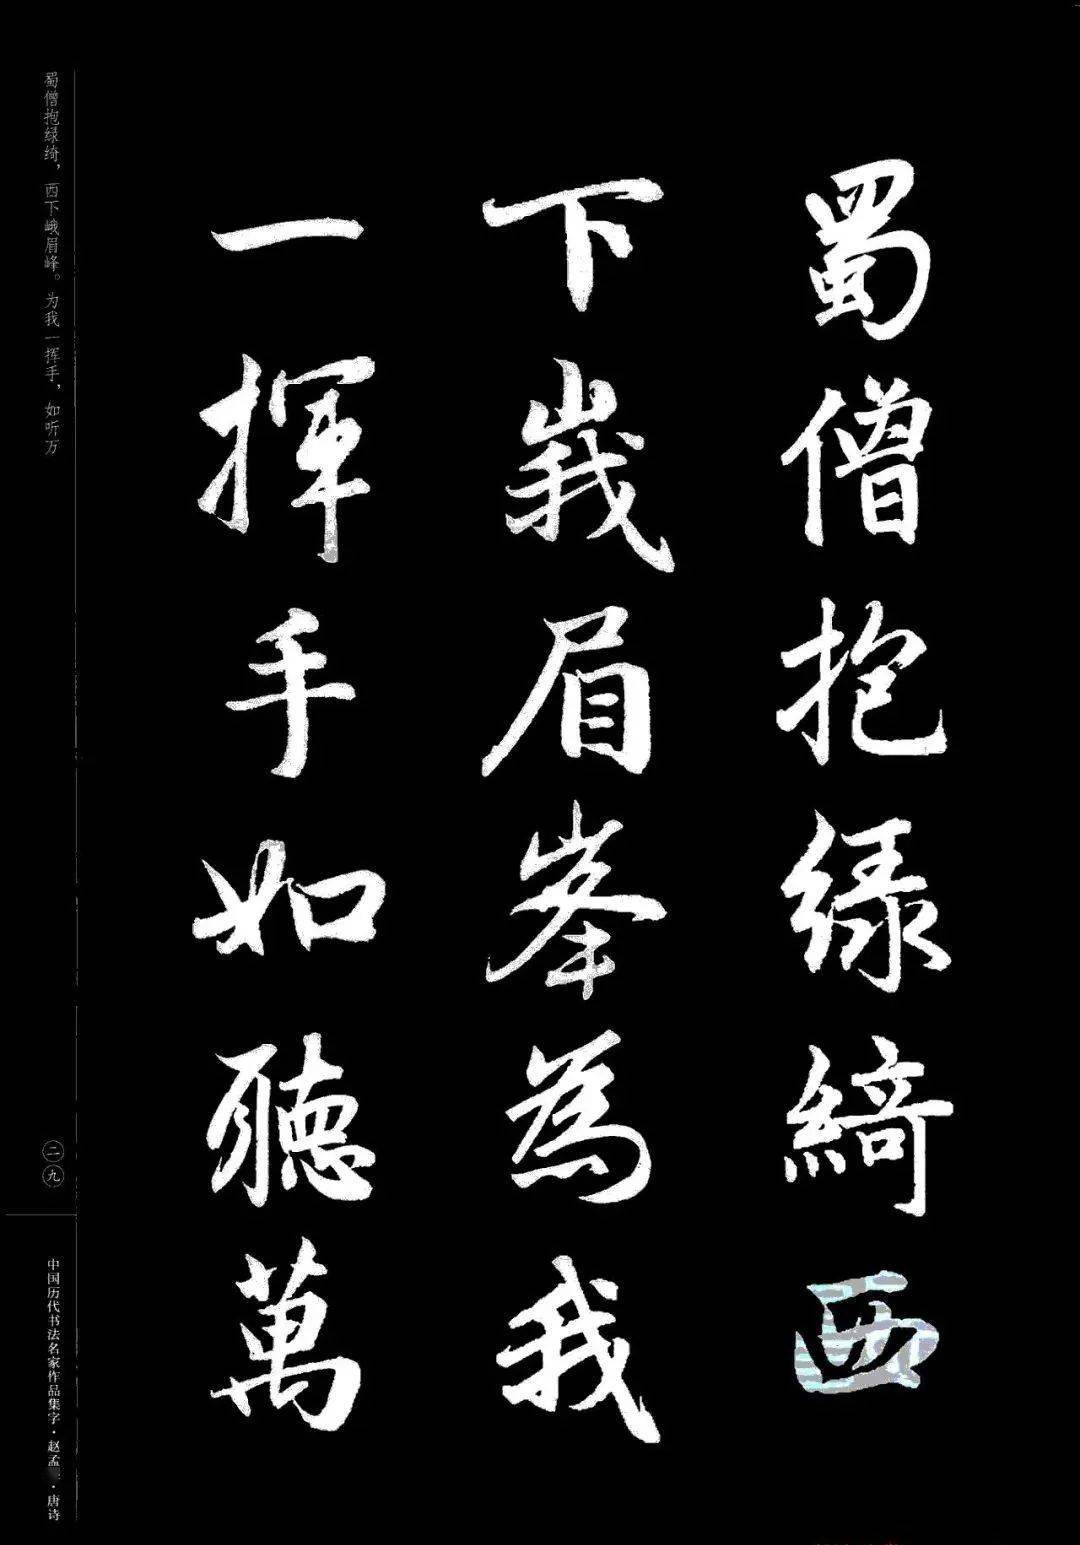 蜀僧抱綠綺西
下峩眉峯為我
一揮手如聽萬
蜀僧抱绿绮，西下峨眉峰。为我一挥手，如听万
二九
中国历代书法名家作品集字·赵孟 ·唐诗